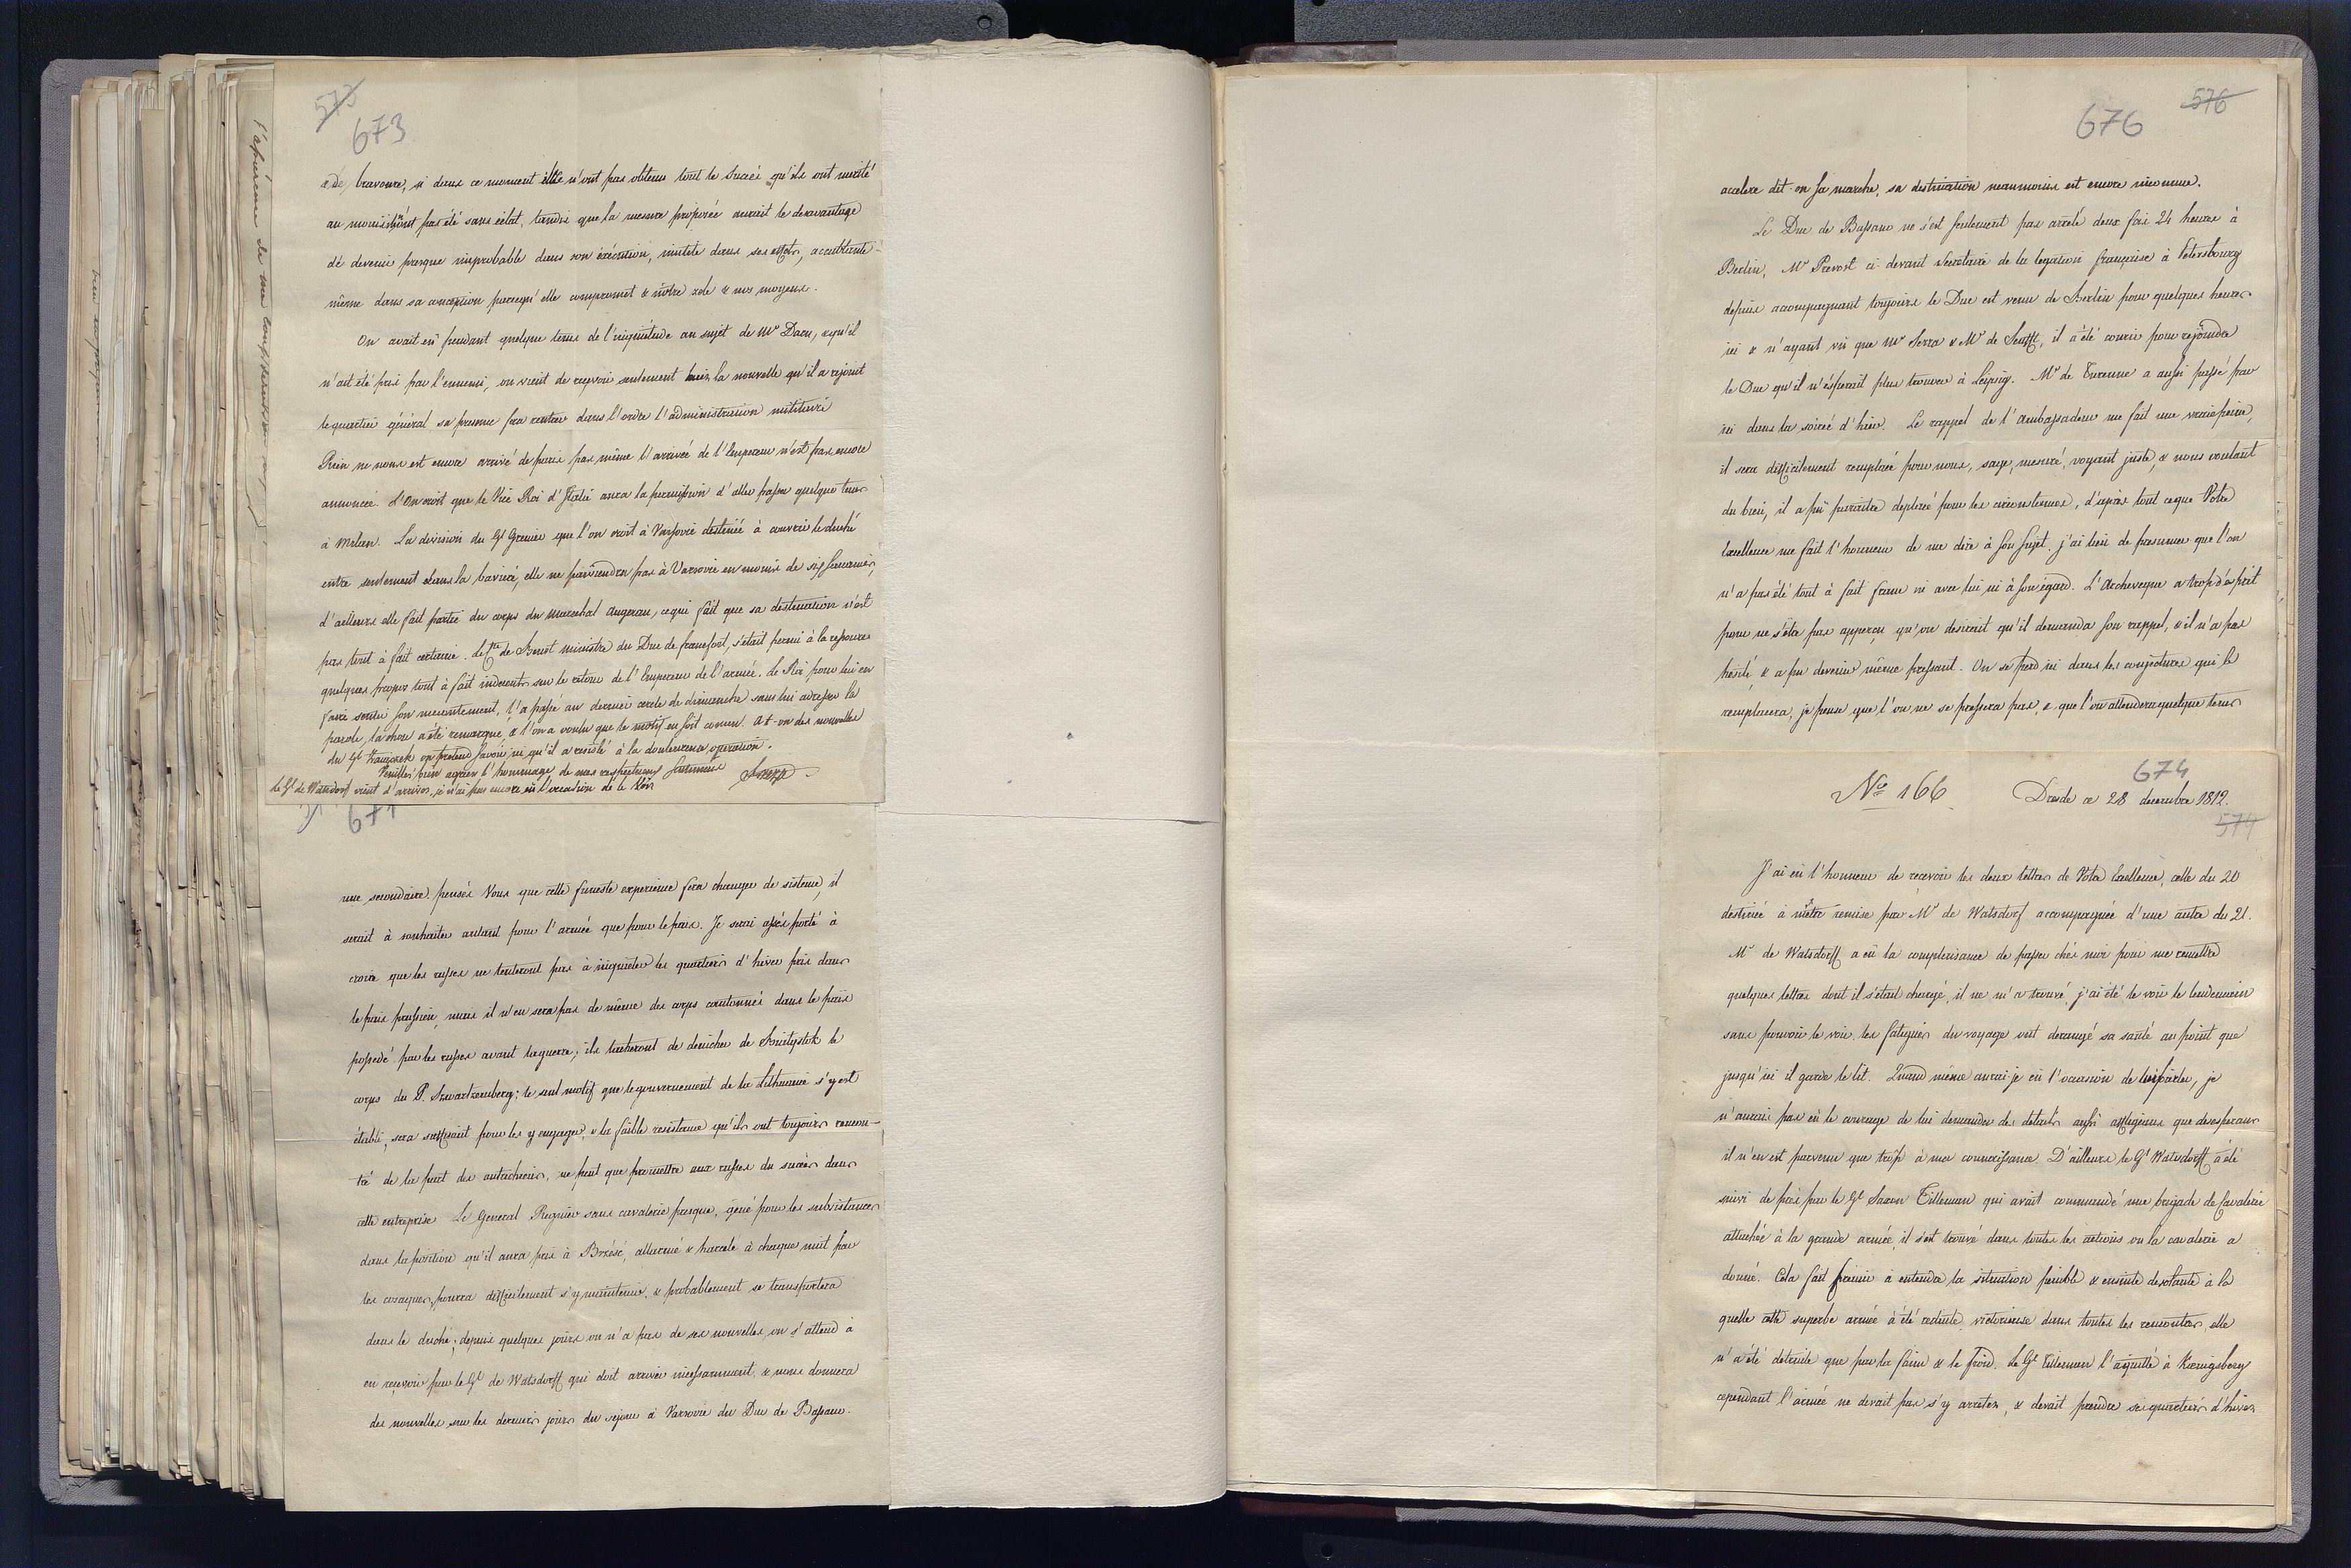 573
673
& de bravoure, si dans ce moment elles n'ont pas obtenu tout le succès qu'ils ont merité
au moins n'ont pas été sans éclat, tandis que la mesure proposée aurait le desavantage
de devenir presque improbable dans son éxécution, inutile dans ses effets, accablante
même dans sa conception parcequ'elle compromet & nôtre zele & nos moyens.
On avait eû pendant quelque tems de l'inquiétude au sujet de Mr Daru, & qu'il
n'ait été pris par l'ennemi, on vient de reçevoir seulement hier la nouvelle qu'il a rejoint
le quartier général sa presence fera rentrer dans l'ordre l'administration militaire
Rien ne nous est encore arrivé de paris pas même l'arrivée de l'Empereur n'est pas encore
annoncée. L'on croit que le Vice Roi d'Italie aura la permission d'aller passer quelque tems
à Milan. La division du Gl Grenier que l'on croit à Varsovie destinée à couvrir le duché
entre seulement dans la baviere, elle ne parviendra pas à Varsovie en moins de six semaines,
d'ailleurs elle fait partie du corps du Marechal Augerau, ce qui fait que sa destination n'est
pas tout à fait certaine. Le de Benst ministre du Duc de francfort, s'etait permi à la
quelques propos tout à fait indecents sur le retour de l'Empereur de l'armée. Le Roi pour lui en
faire sentir son mecontentement, l'a passé au dernier cercle de dimanche sans lui adresser la
parole, la chose a été remarqué, & l'on a voulu que le motif en soit connu. At-on des nouvelles
du Gl Zaiączek on pretend savoir ici qu'il a resisté à la douloureuse operation.
Veuillés bien agréer l'hommage de mes respectueux sentimens
le Gl de Watzdorf vient d'arriver, je n'ai pas encore eû l'occasion de le voir
671
une secondaire. pensés Vous que cette funeste experience fera changer de sisteme, il
serait à souhaiter autant pour l'armée que pour le pais. Je serai assés porté à
croire que les russes ne tenteront pas à inquieter les quartiers d'hiver pris dans
le pais prussien, mais il n'en sera pas de même des corps cantonnés dans le païs
possedé par les russes avant la guerre; ils tacheront de denicher de Bialystok le
corps du P. Szwartzemberg; le seul motif que le gouvernement de la Lithuanie s'y est
établi, sera suffisant pour les y engager, & la faible resistance qu'ils ont toujours rencon-
tré de la part des autrichiens, ne peut que promettre aux russes du succès dans
cette entreprise Le General Regnier sans cavalerie presque, gêné pour les subsistances
dans la position qu'il aura pris à Brzésć, allarmé & harcelé à chaque nuit par
les cosaques, pourra difficilement s'y maintenir, & probablement se transportera
dans le duché; depuis quelques jours on n'a pas de ses nouvelles on s'attend à
en reçevoir par le Gl de Watsdorff qui doit arriver incessamment, & nous donnera
des nouvelles sur les derniers jours du sejour à Varsovie du Duc de Bassano.
576
676
accelere dit on sa marche, sa destination neanmoins est encore inconnue.
Le Duc de Bassano ne s'est seulement pas arreté deux fois 24 heures à
Berlin, Mr Prevost ci-devant Secretaire de la legation française à Petersbourg
depuis accompagnant toujours le Duc est venu de Berlin pour quelques heures
ici & n'ayant vû que Mr Serra & Mr de Senfft, il a été courir pour rejoindre
le Duc qu'il n'ésperait plus trouver à Leipsig. Mr de Turenne a aussi passé par
ici dans la soirée d'hier. Le rappel de l'Ambassadeur me fait une vraie peine,
il sera difficilement remplacé pour nous, sage, mesuré, voyant juste, & nous voulant
du bien, il a pû paraitre deplacé pour les circonstances, d'après tout ce que Votre
Excellence me fait l'honneur de me dire à son sujet, j'ai lieu de presumer que l'on
n'a pas été tout à fait franc ni avec lui ni à son égard. L'Archeveque a trop d'esprit
pour ne s'être pas apperçu qu'on desirait qu'il demanda son rappel, & il n'a pas
hesité, & a pu devenir même pressant. On se perd ici dans les conjectures qui le
remplacera, je pense que l'on ne se pressera pas, & que l'on attendera quelque tems
674
No 166 Dresde ce 28 decembre 1812.
574
J'ai eû l'honneur de recevoir les deux lettres de Votre Excellence, celle du 20
destinée à m'être remise par Mr de Watsdorf accompagnée d'une autre du 21.
Mr de Watsdorff a eû la complaisance de passer chés moi pour me remettre
quelques lettres dont il s'etait chargé, il ne m'a trouvé, j'ai été le voir le lendemain
sans pouvoir le voir. les fatigues du voyage ont derangé sa santé au point que
jusqu'ici il garde le lit. Quand même aurai je eû l'occasion de lui parler, je
n'aurais pas eû le courage de lui demander des details aussi affligeans que desesperans
il n'en est parvenu que trop à ma connaissance. D'ailleurs le Gl Watsdorff a été
suivi de près par le Gl Saxon Tilleman qui avait commandé une brigade de Cavalerie
attachée à la grande armée, il s'est trouvé dans toutes les actions ou la cavalerie a
donné. Cela fait fremir à entendre la situation penible & ensuite desolante à la
quelle cette superbe armée à été reduite. victorieuse dans toutes les rencontres, elle
n'a été detruite que par la faim & le froid. Le Gl Tilleman l'a quitté à Kœnigsberg
cependant l'armée ne devait pas s'y arreter, & devait prendre ses quartiers d'hiver